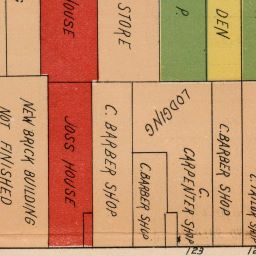 HOUSE
STORE
P.
DEN
NEW BRICK BUILDING
NOT FINISHED
JOSS HOUSE
C. BARBER SHOP
LODGING
C. BARBER SHOP
C.
CARPENTER SHOP
C. BARBER SHOP
123